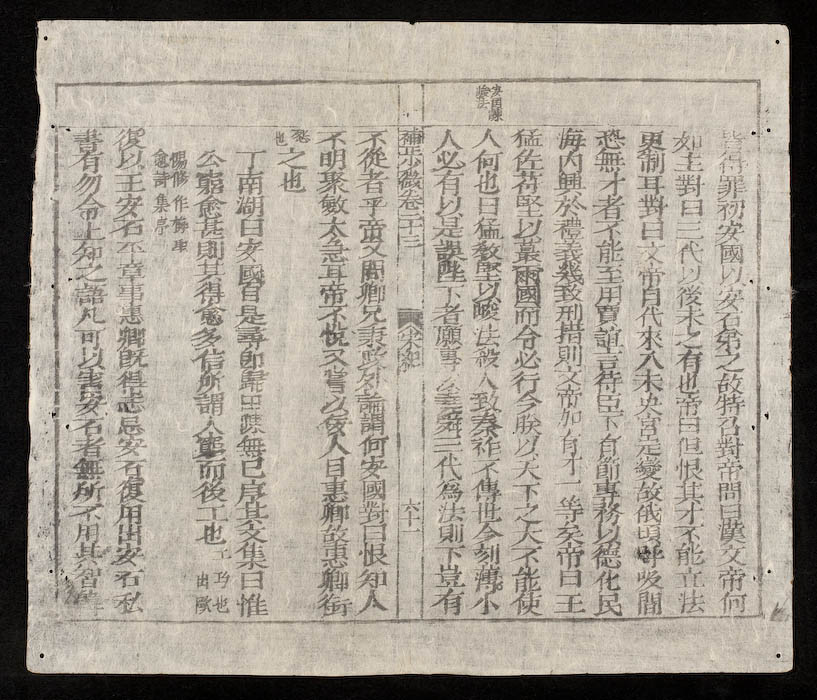 皆得罪初安國以安石弟之故特召對帝問曰漢文帝何
如主對曰三代以後未之有也帝曰但恨其才不能立法
更制耳對曰文帝自代來入未央宮定變故俄頃呼吸間
恐無才者不能至用賈誼言待臣下有節專務以德化民
海內興於禮義幾致刑措則文帝加有才一等矣帝曰王
猛佐苻堅以蕞爾國而令必行今朕以天下之大不能使
人何也曰猛敎堅以峻法殺人致秦祚不傳世今刻薄小
人必有以是誤陛下者願專以堯舜三代爲法則下豈有
補少微卷二十三
宋紀
六十一
不從者乎帝又問卿兄秉政外論謂何安國對曰恨知人
不明聚斂太急耳帝不悅又嘗以佞人目惠卿故惠卿銜
之也
丁南湖曰安國自是尋卽歸田無已序其父集曰惟
公窮愈甚則其得愈多信所謂人窮而後工也
工巧也
出歐
陽修作梅聖
兪詩集序
復以王安石平章事惠卿旣得志忌安石復用出安石私
書有勿令上知之語凡可以害安石者無所不用其智